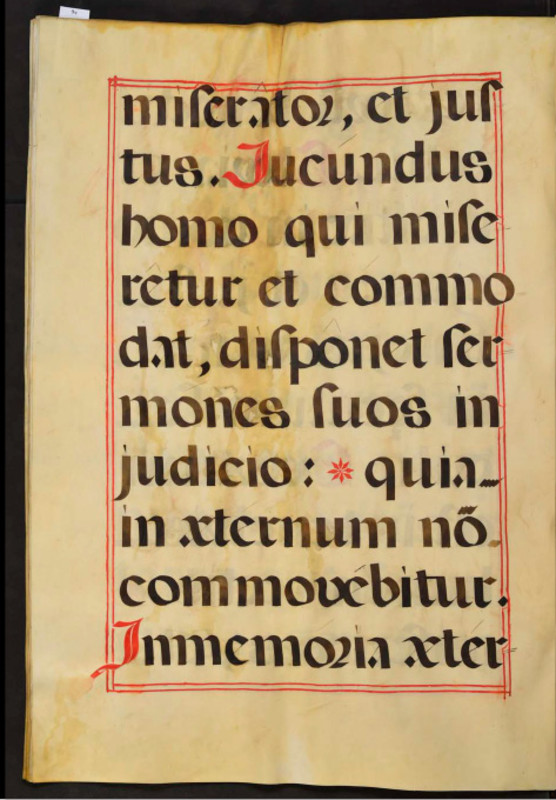 miſerator, et juſ
tus. Jucundus
homo qui miſe
retur et commo
dat, diſponet ſer
mones ſuos in
judicio: * quia
in æternum nō
commovébitur.
Inmemoria æter